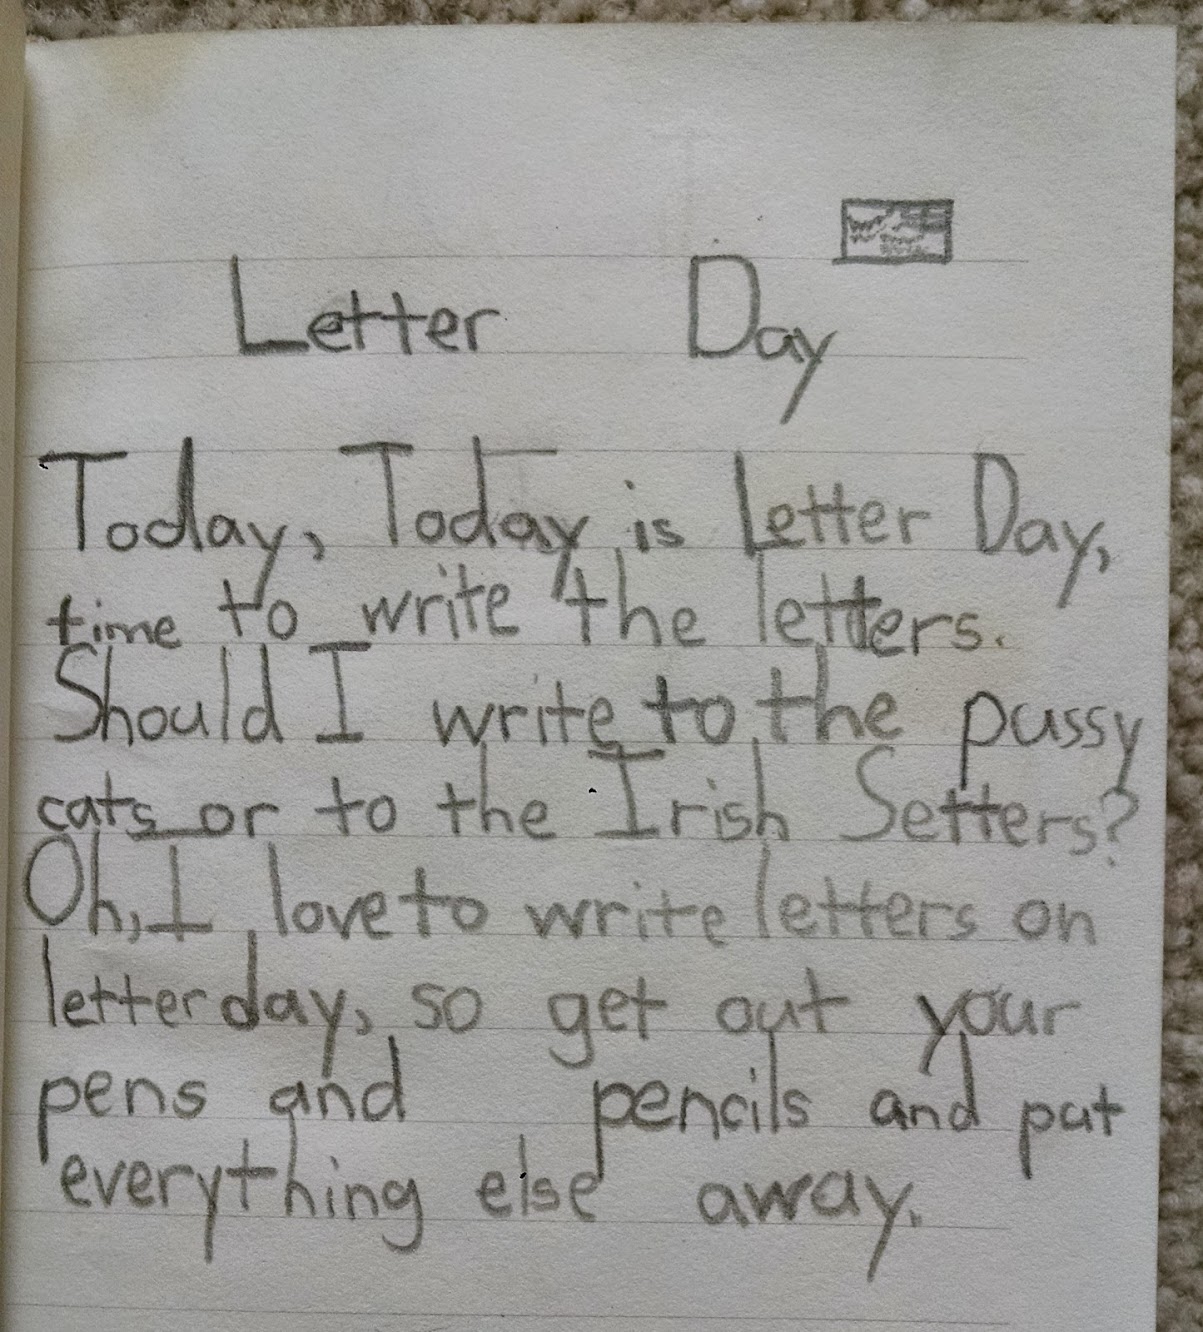 Letter Day
Today, Today is Letter Day,
time to write the letters.
Should I write to the pussy
cats or to the Irish Setters?
Oh, I love to write letters on
letter day, so get out your
pens and pencils and put
everything else away.